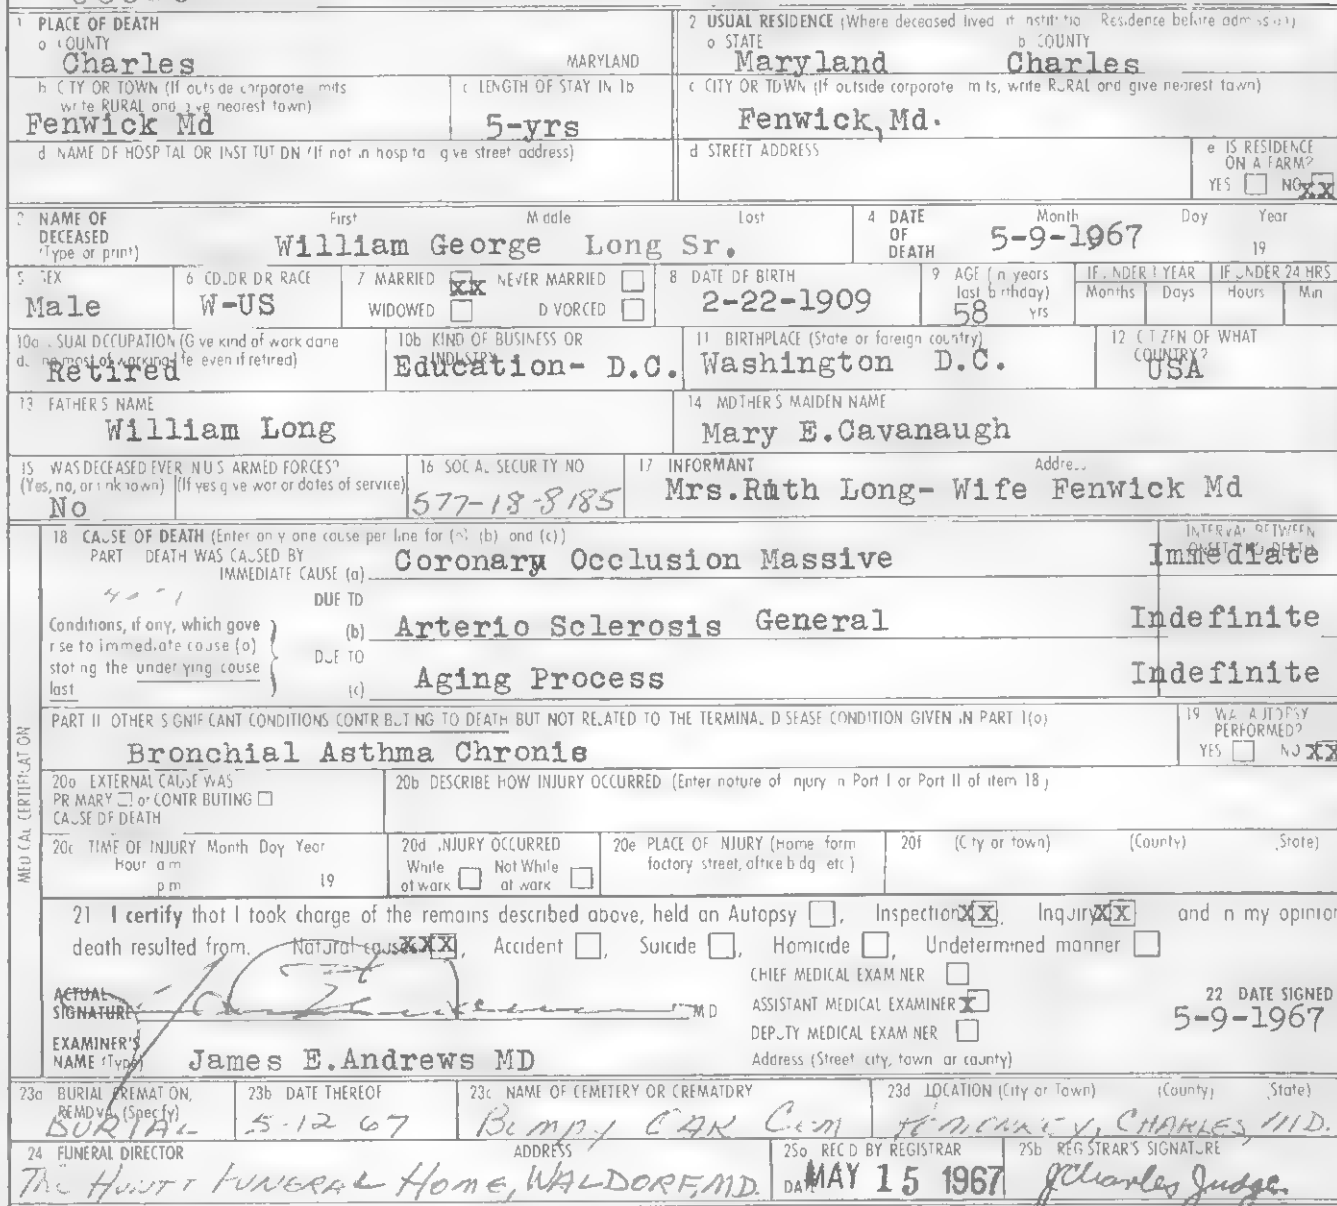 1 PLACE OF DEATH
a COUNTY
Charles MARYLAND
b CITY OR TOWN (If outside corporate limits write RURAL and give nearest town)
Fenwick Md
c LENGTH OF STAY IN 1b
5-yrs
d NAME OF HOSPITAL OR INSTITUTION (If not in hospital give street address)
2 USUAL RESIDENCE (Where deceased lived if institution Residence before admission)
a STATE
Maryland
b COUNTY
Charles
c CITY OR TOWN (If outside corporate limits, write RURAL and give nearest town)
Fenwick, Md.
d STREET ADDRESS
e IS RESIDENCE ON A FARM?
YES NO XX
3 NAME OF DECEASED (Type or print)
First Middle Last
William George Long Sr.
4 DATE OF DEATH
Month Day Year
5-9-1967 19
5 SEX
Male
6 COLOR OR RACE
W-US
7 MARRIED XX NEVER MARRIED
WIDOWED DIVORCED
8 DATE OF BIRTH
2-22-1909
9 AGE (In years last birthday)
58 yrs
IF UNDER 1 YEAR
Months Days
IF UNDER 24 HRS
Hours Min
10a USUAL OCCUPATION (Give kind of work done during most of working life even if retired)
Retired
10b KIND OF BUSINESS OR INDUSTRY
Education- D.C.
11 BIRTHPLACE (State or foreign country)
Washington D.C.
12 CITIZEN OF WHAT COUNTRY?
USA
13 FATHERS NAME
William Long
14 MOTHERS MAIDEN NAME
Mary E.Cavanaugh
15 WAS DECEASED EVER IN U S ARMED FORCES?
(Yes, no, or unknown) (If yes give war or dates of service)
No
16 SOCIAL SECURITY NO
577-18-8185
17 INFORMANT Address
Mrs.Ruth Long- Wife Fenwick Md
MEDICAL CERTIFICATION
18 CAUSE OF DEATH (Enter only one cause per line for (a) (b) and (c))
PART I DEATH WAS CAUSED BY
IMMEDIATE CAUSE (a) Coronary Occlusion Massive
INTERVAL BETWEEN ONSET AND DEATH
Immediate
Conditions, if any, which gave rise to immediate cause (a) stating the underlying cause last
DUE TO
(b) Arterio Sclerosis General Indefinite
DUE TO
(c) Aging Process Indefinite
PART II OTHER SIGNIFICANT CONDITIONS CONTRIBUTING TO DEATH BUT NOT RELATED TO THE TERMINAL DISEASE CONDITION GIVEN IN PART I(a)
Bronchial Asthma Chronis
19 WAS AUTOPSY PERFORMED?
YES NO XX
20a EXTERNAL CAUSE WAS
PRIMARY or CONTRIBUTING
CAUSE OF DEATH
20b DESCRIBE HOW INJURY OCCURRED (Enter nature of injury in Part I or Part II of item 18)
20c TIME OF INJURY Month Day Year
Hour a m
p m 19
20d INJURY OCCURRED
While at work Not While at work
20e PLACE OF INJURY (Home form factory street, office bldg etc)
20f (City or town) (County) (State)
21 I certify that I took charge of the remains described above, held an Autopsy , Inspection XX, Inquiry XX and in my opinion
death resulted from, Natural causes XXX, Accident , Suicide , Homicide , Undetermined manner
CHIEF MEDICAL EXAMINER
ACTUAL SIGNATURE M D
ASSISTANT MEDICAL EXAMINER X
DEPUTY MEDICAL EXAMINER
22 DATE SIGNED
5-9-1967
EXAMINER'S NAME (Type) James E.Andrews MD
Address (Street city, town or county)
23a BURIAL CREMATION, REMOVAL (Specify)
BURIAL
23b DATE THEREOF
5-12 67
23c NAME OF CEMETERY OR CREMATORY
Bumpy OAK Cem
23d LOCATION (City or Town) (County) (State)
CHARLES, MD.
24 FUNERAL DIRECTOR ADDRESS
The HUNTT FUNERAL HOME, WALDORF, MD.
25a REC D BY REGISTRAR
DATE MAY 15 1967
25b REGISTRAR'S SIGNATURE
J Charles Judge